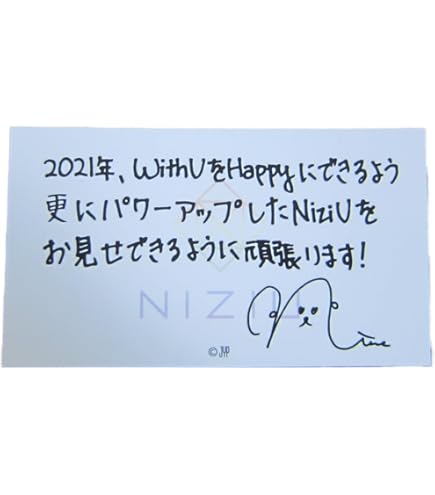 2021年、WithUをHappyにできるよう
更にパワーアップしたNiziUを
お見せできるように頑張ります!
NIZIU
©JYP